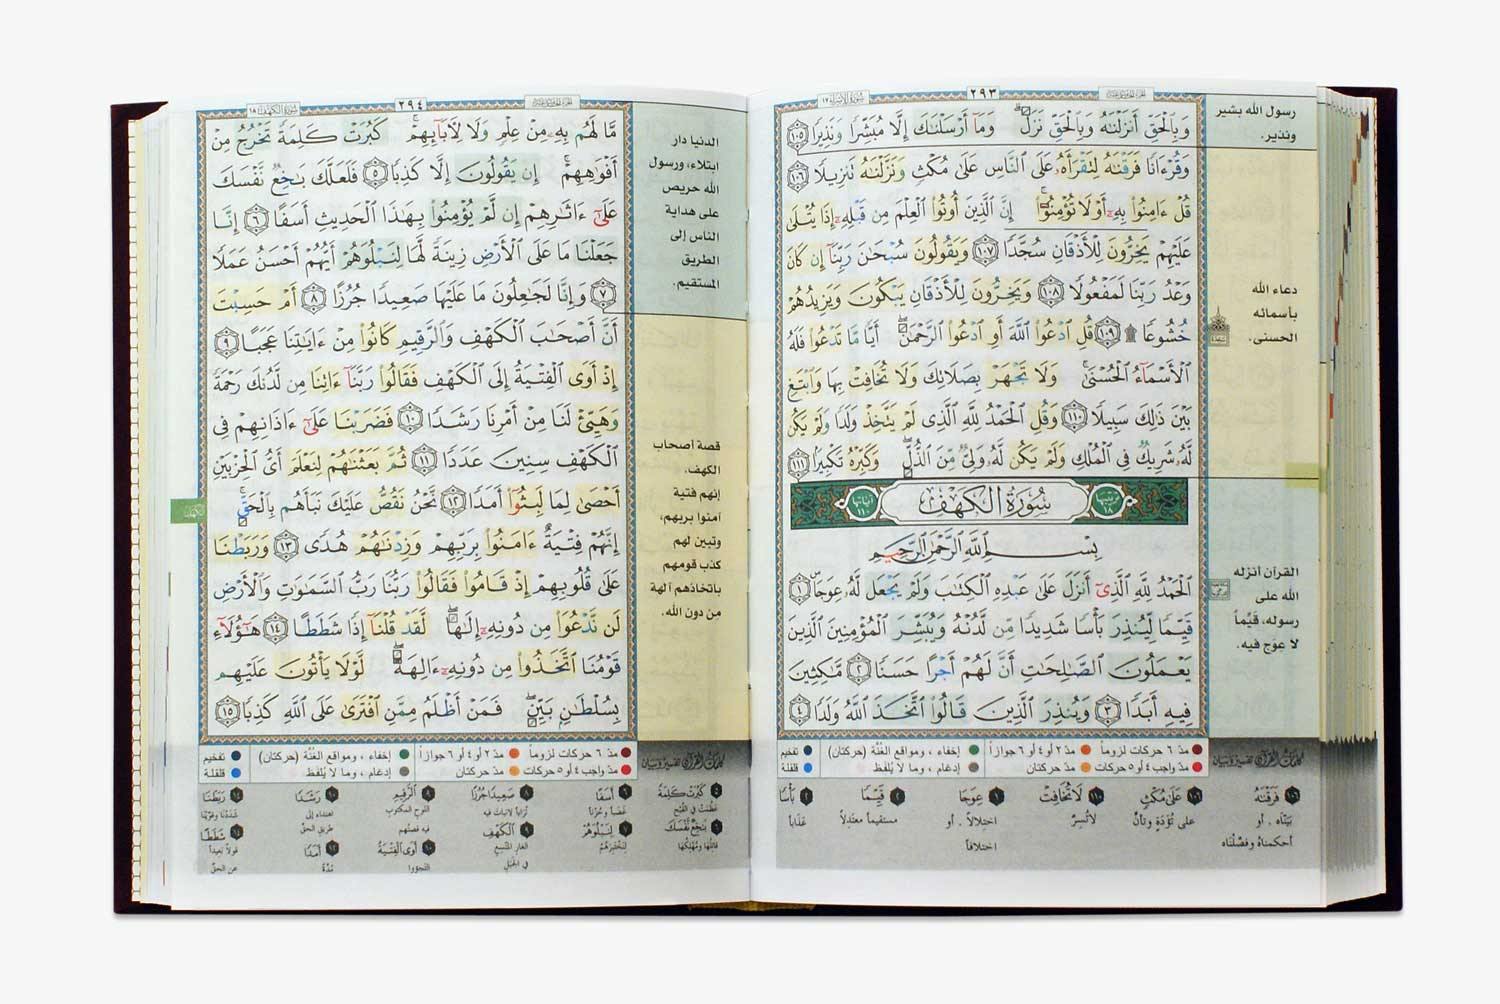 سورة الإسراء ١٧
٢٩٣
وَبِالْحَقِّ أَنزَلْنَٰهُ وَبِالْحَقِّ نَزَلَ ۗ وَمَا أَرْسَلْنَٰكَ إِلَّا مُبَشِّرًا وَنَذِيرًا ١٠٥
وَقُرْءَانًا فَرَقْنَٰهُ لِتَقْرَأَهُۥ عَلَى النَّاسِ عَلَىٰ مُكْثٍ وَنَزَّلْنَٰهُ تَنزِيلًا ١٠٦
قُلْ ءَامِنُوا بِهِۦٓ أَوْ لَا تُؤْمِنُوٓا ۚ إِنَّ الَّذِينَ أُوتُوا الْعِلْمَ مِن قَبْلِهِۦٓ إِذَا يُتْلَىٰ
عَلَيْهِمْ يَخِرُّونَ لِلْأَذْقَانِ سُجَّدًا ١٠٧ وَيَقُولُونَ سُبْحَٰنَ رَبِّنَآ إِن كَانَ
وَعْدُ رَبِّنَا لَمَفْعُولًا ١٠٨ وَيَخِرُّونَ لِلْأَذْقَانِ يَبْكُونَ وَيَزِيدُهُمْ
خُشُوعًا ۩ ١٠٩ قُلِ ادْعُوا اللَّهَ أَوِ ادْعُوا الرَّحْمَٰنَ ۖ أَيًّا مَّا تَدْعُوا فَلَهُ
الْأَسْمَآءُ الْحُسْنَىٰ ۚ وَلَا تَجْهَرْ بِصَلَاتِكَ وَلَا تُخَافِتْ بِهَا وَابْتَغِ
بَيْنَ ذَٰلِكَ سَبِيلًا ١١٠ وَقُلِ الْحَمْدُ لِلَّهِ الَّذِى لَمْ يَتَّخِذْ وَلَدًا وَلَمْ يَكُن
لَّهُۥ شَرِيكٌ فِى الْمُلْكِ وَلَمْ يَكُن لَّهُۥ وَلِىٌّ مِّنَ الذُّلِّ ۖ وَكَبِّرْهُ تَكْبِيرًا ١١١
ترتيبها ١٨
سُورَةُ الْكَهْفِ
آياتها ١١٠
بِسْمِ اللَّهِ الرَّحْمَٰنِ الرَّحِيمِ
الْحَمْدُ لِلَّهِ الَّذِىٓ أَنزَلَ عَلَىٰ عَبْدِهِ الْكِتَٰبَ وَلَمْ يَجْعَل لَّهُۥ عِوَجَا ۜ ١
قَيِّمًا لِّيُنذِرَ بَأْسًا شَدِيدًا مِّن لَّدُنْهُ وَيُبَشِّرَ الْمُؤْمِنِينَ الَّذِينَ
يَعْمَلُونَ الصَّٰلِحَٰتِ أَنَّ لَهُمْ أَجْرًا حَسَنًا ٢ مَّٰكِثِينَ
فِيهِ أَبَدًا ٣ وَيُنذِرَ الَّذِينَ قَالُوا اتَّخَذَ اللَّهُ وَلَدًا ٤
رسول الله بشير
ونذير.
دعاء الله
بأسمائه
الحسنى.
القرآن أنزله
الله على
رسوله، قيِّماً
لا عِوج فيه.
مدّ ٦ حركات لزوماً مدّ ٢ أو ٤ أو ٦ جوازاً إخفاء ، ومواقع الغُنَّة (حركتان) تفخيم
مدّ واجب ٤ أو ٥ حركات مدّ حركتان إدغام ، وما لا يُلفظ قلقلة
كلمات القرآن تفسير وبيان
١٠٦ فَرَقْنَاهُ
بيّناه . أو
أحكمناهُ وفصّلناه
١٠٦ عَلَى مُكْثٍ
على تُؤَدَةٍ وتأنٍّ
١١٠ لَا تُخَافِتْ
لا تُسِرَّ
١ عِوَجًا
اختلالاً . أو
اختلافاً
٢ قَيِّمًا
مستقيماً معتدِلاً
٢ بَأْسًا
عَذاباً
سورة الكهف ١٨
٢٩٤
مَّا لَهُم بِهِۦ مِنْ عِلْمٍ وَلَا لِءَابَآئِهِمْ ۚ كَبُرَتْ كَلِمَةً تَخْرُجُ مِنْ
أَفْوَٰهِهِمْ ۚ إِن يَقُولُونَ إِلَّا كَذِبًا ٥ فَلَعَلَّكَ بَٰخِعٌ نَّفْسَكَ
عَلَىٰٓ ءَاثَٰرِهِمْ إِن لَّمْ يُؤْمِنُوا بِهَٰذَا الْحَدِيثِ أَسَفًا ٦ إِنَّا
جَعَلْنَا مَا عَلَى الْأَرْضِ زِينَةً لَّهَا لِنَبْلُوَهُمْ أَيُّهُمْ أَحْسَنُ عَمَلًا
٧ وَإِنَّا لَجَٰعِلُونَ مَا عَلَيْهَا صَعِيدًا جُرُزًا ٨ أَمْ حَسِبْتَ
أَنَّ أَصْحَٰبَ الْكَهْفِ وَالرَّقِيمِ كَانُوا مِنْ ءَايَٰتِنَا عَجَبًا ٩
إِذْ أَوَى الْفِتْيَةُ إِلَى الْكَهْفِ فَقَالُوا رَبَّنَآ ءَاتِنَا مِن لَّدُنكَ رَحْمَةً
وَهَيِّئْ لَنَا مِنْ أَمْرِنَا رَشَدًا ١٠ فَضَرَبْنَا عَلَىٰٓ ءَاذَانِهِمْ فِى
الْكَهْفِ سِنِينَ عَدَدًا ١١ ثُمَّ بَعَثْنَٰهُمْ لِنَعْلَمَ أَىُّ الْحِزْبَيْنِ
أَحْصَىٰ لِمَا لَبِثُوٓا أَمَدًا ١٢ نَّحْنُ نَقُصُّ عَلَيْكَ نَبَأَهُم بِالْحَقِّ ۚ
إِنَّهُمْ فِتْيَةٌ ءَامَنُوا بِرَبِّهِمْ وَزِدْنَٰهُمْ هُدًى ١٣ وَرَبَطْنَا
عَلَىٰ قُلُوبِهِمْ إِذْ قَامُوا فَقَالُوا رَبُّنَا رَبُّ السَّمَٰوَٰتِ وَالْأَرْضِ
لَن نَّدْعُوَا مِن دُونِهِۦٓ إِلَٰهًا ۖ لَّقَدْ قُلْنَآ إِذًا شَطَطًا ١٤ هَٰٓؤُلَآءِ
قَوْمُنَا اتَّخَذُوا مِن دُونِهِۦٓ ءَالِهَةً ۖ لَّوْلَا يَأْتُونَ عَلَيْهِم
بِسُلْطَٰنٍ بَيِّنٍ ۖ فَمَنْ أَظْلَمُ مِمَّنِ افْتَرَىٰ عَلَى اللَّهِ كَذِبًا ١٥
الدنيا دار
ابتلاء، ورسول
الله حريص
على هداية
الناس إلى
الطريق
المستقيم.
قصة أصحاب
الكهف.
إنهم فتية
آمنوا بربهم،
وتبين لهم
كذب قومهم
باتخاذهم آلهة
من دون الله.
الكهف
مدّ ٦ حركات لزوماً مدّ ٢ أو ٤ أو ٦ جوازاً إخفاء ، ومواقع الغُنَّة (حركتان) تفخيم
مدّ واجب ٤ أو ٥ حركات مدّ حركتان إدغام ، وما لا يُلفظ قلقلة
كلمات القرآن تفسير وبيان
٥ كَبُرَتْ كَلِمَةً
عَظُمَت في القُبْح
٦ بَاخِعٌ نَّفْسَكَ
قاتِلُها ومُهْلِكُها
٦ أَسَفًا
غَضَباً وحُزْناً
٧ لِنَبْلُوَهُمْ
لنَخْتَبِرَهُمْ
٨ صَعِيدًا جُرُزًا
تُراباً لا نبات فيه
٩ الْكَهْفِ
الغار المتّسِع
في الجَبَل
٩ الرَّقِيمِ
اللوح المكتوب
فيه قصتُهم
١٠ أَوَى الْفِتْيَةُ
التجؤوا
١٠ رَشَدًا
اهتداءً إلى
طريق الحقّ
١٢ أَمَدًا
مُدّةً
١٤ رَبَطْنَا
شَدَدْنا وقوَّيْنا
١٤ شَطَطًا
قولاً بعيداً
عن الحقّ